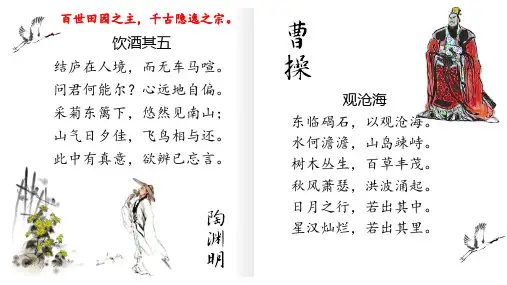 百世田园之主，千古隐逸之宗。
饮酒其五
结庐在人境，而无车马喧。
问君何能尔？心远地自偏。
采菊东篱下，悠然见南山；
山气日夕佳，飞鸟相与还。
此中有真意，欲辨已忘言。
陶渊明
曹操
观沧海
东临碣石，以观沧海。
水何澹澹，山岛竦峙。
树木丛生，百草丰茂。
秋风萧瑟，洪波涌起。
日月之行，若出其中。
星汉灿烂，若出其里。